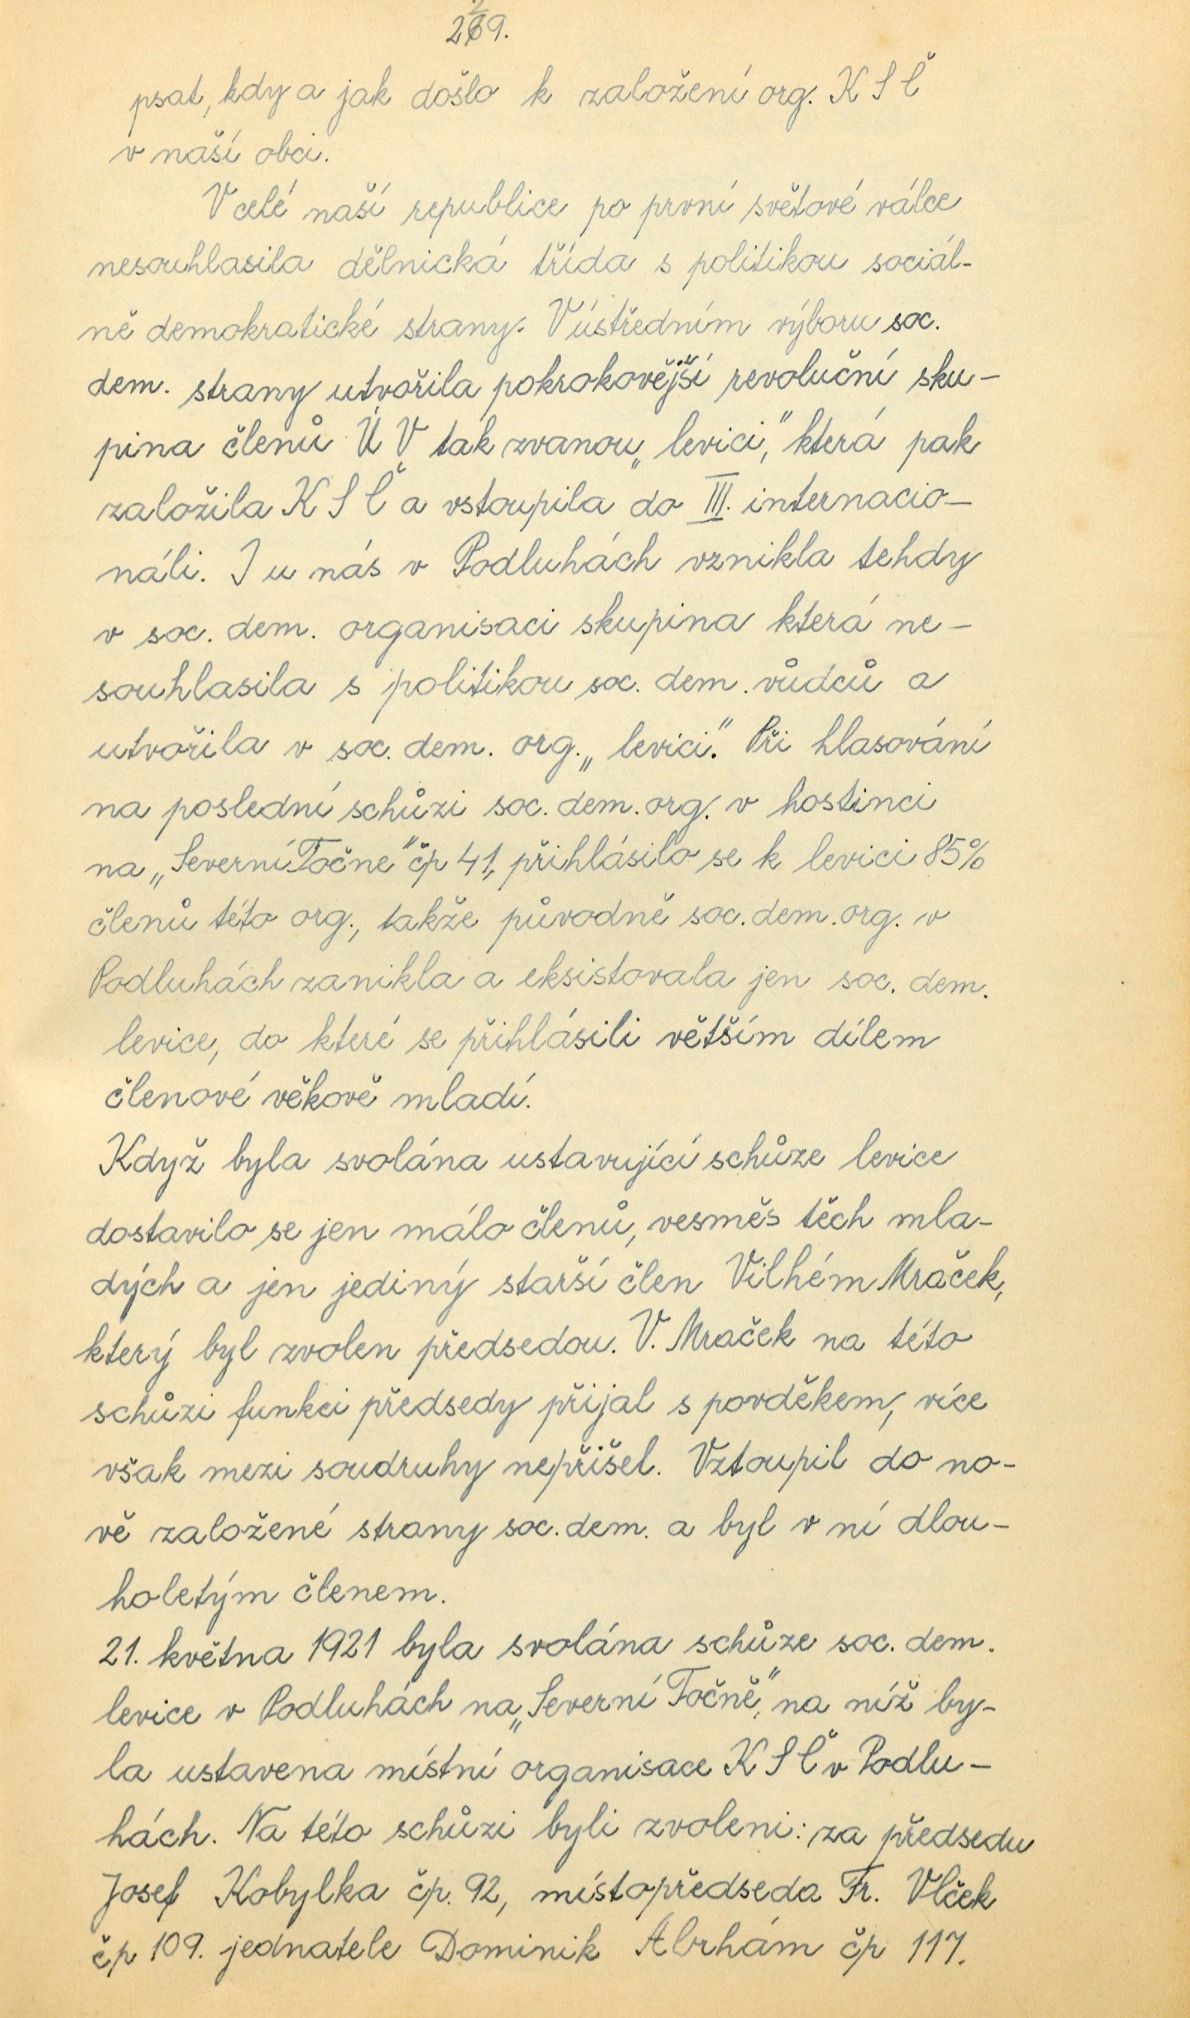 279.
psat, kdy a jak došlo k založení org. KSČ
v naší obci.
V celé naší republice po první světové válce
nesouhlasila dělnická třída s politikou sociál-
ně demokratické strany. V ústředním výboru soc.
dem. strany utvořila pokrokovější revoluční sku-
pina členů ÚV tak zvanou „levici," která pak
založila KSČ a vstoupila do III. internacio-
náli. I u nás v Podluhách vznikla tehdy
v soc. dem. organisaci skupina která ne-
souhlasila s politikou soc. dem. vůdců a
utvořila v soc. dem. org. „levici." Při hlasování
na poslední schůzi soc. dem. org. v hostinci
na „Severní Točne" čp 41, přihlásilo se k levici 85%
členů této org., takže původně soc. dem. org. v
Podluhách zanikla a eksistovala jen soc. dem.
levice, do které se přihlásili větším dílem
členové věkově mladí.
Když byla svolána ustavující schůze levice
dostavilo se jen málo členů, vesměs těch mla-
dých a jen jediný starší člen Vilhém Mraček,
který byl zvolen předsedou. V. Mraček na této
schůzi funkci předsedy přijal s povděkem, více
však mezi soudruhy nepřišel. Vztoupil do no-
vě založené strany soc. dem. a byl v ní dlou-
holetým členem.
21. května 1921 byla svolána schůze soc. dem.
levice v Podluhách na „Severní Točně," na níž by-
la ustavena místní organisace KSČ v Podlu-
hách. Na této schůzi byli zvoleni: za předsedu
Josef Kobylka čp. 92, místopředseda Fr. Vlček
čp 109. jednatele Dominik Abrhám čp 117.